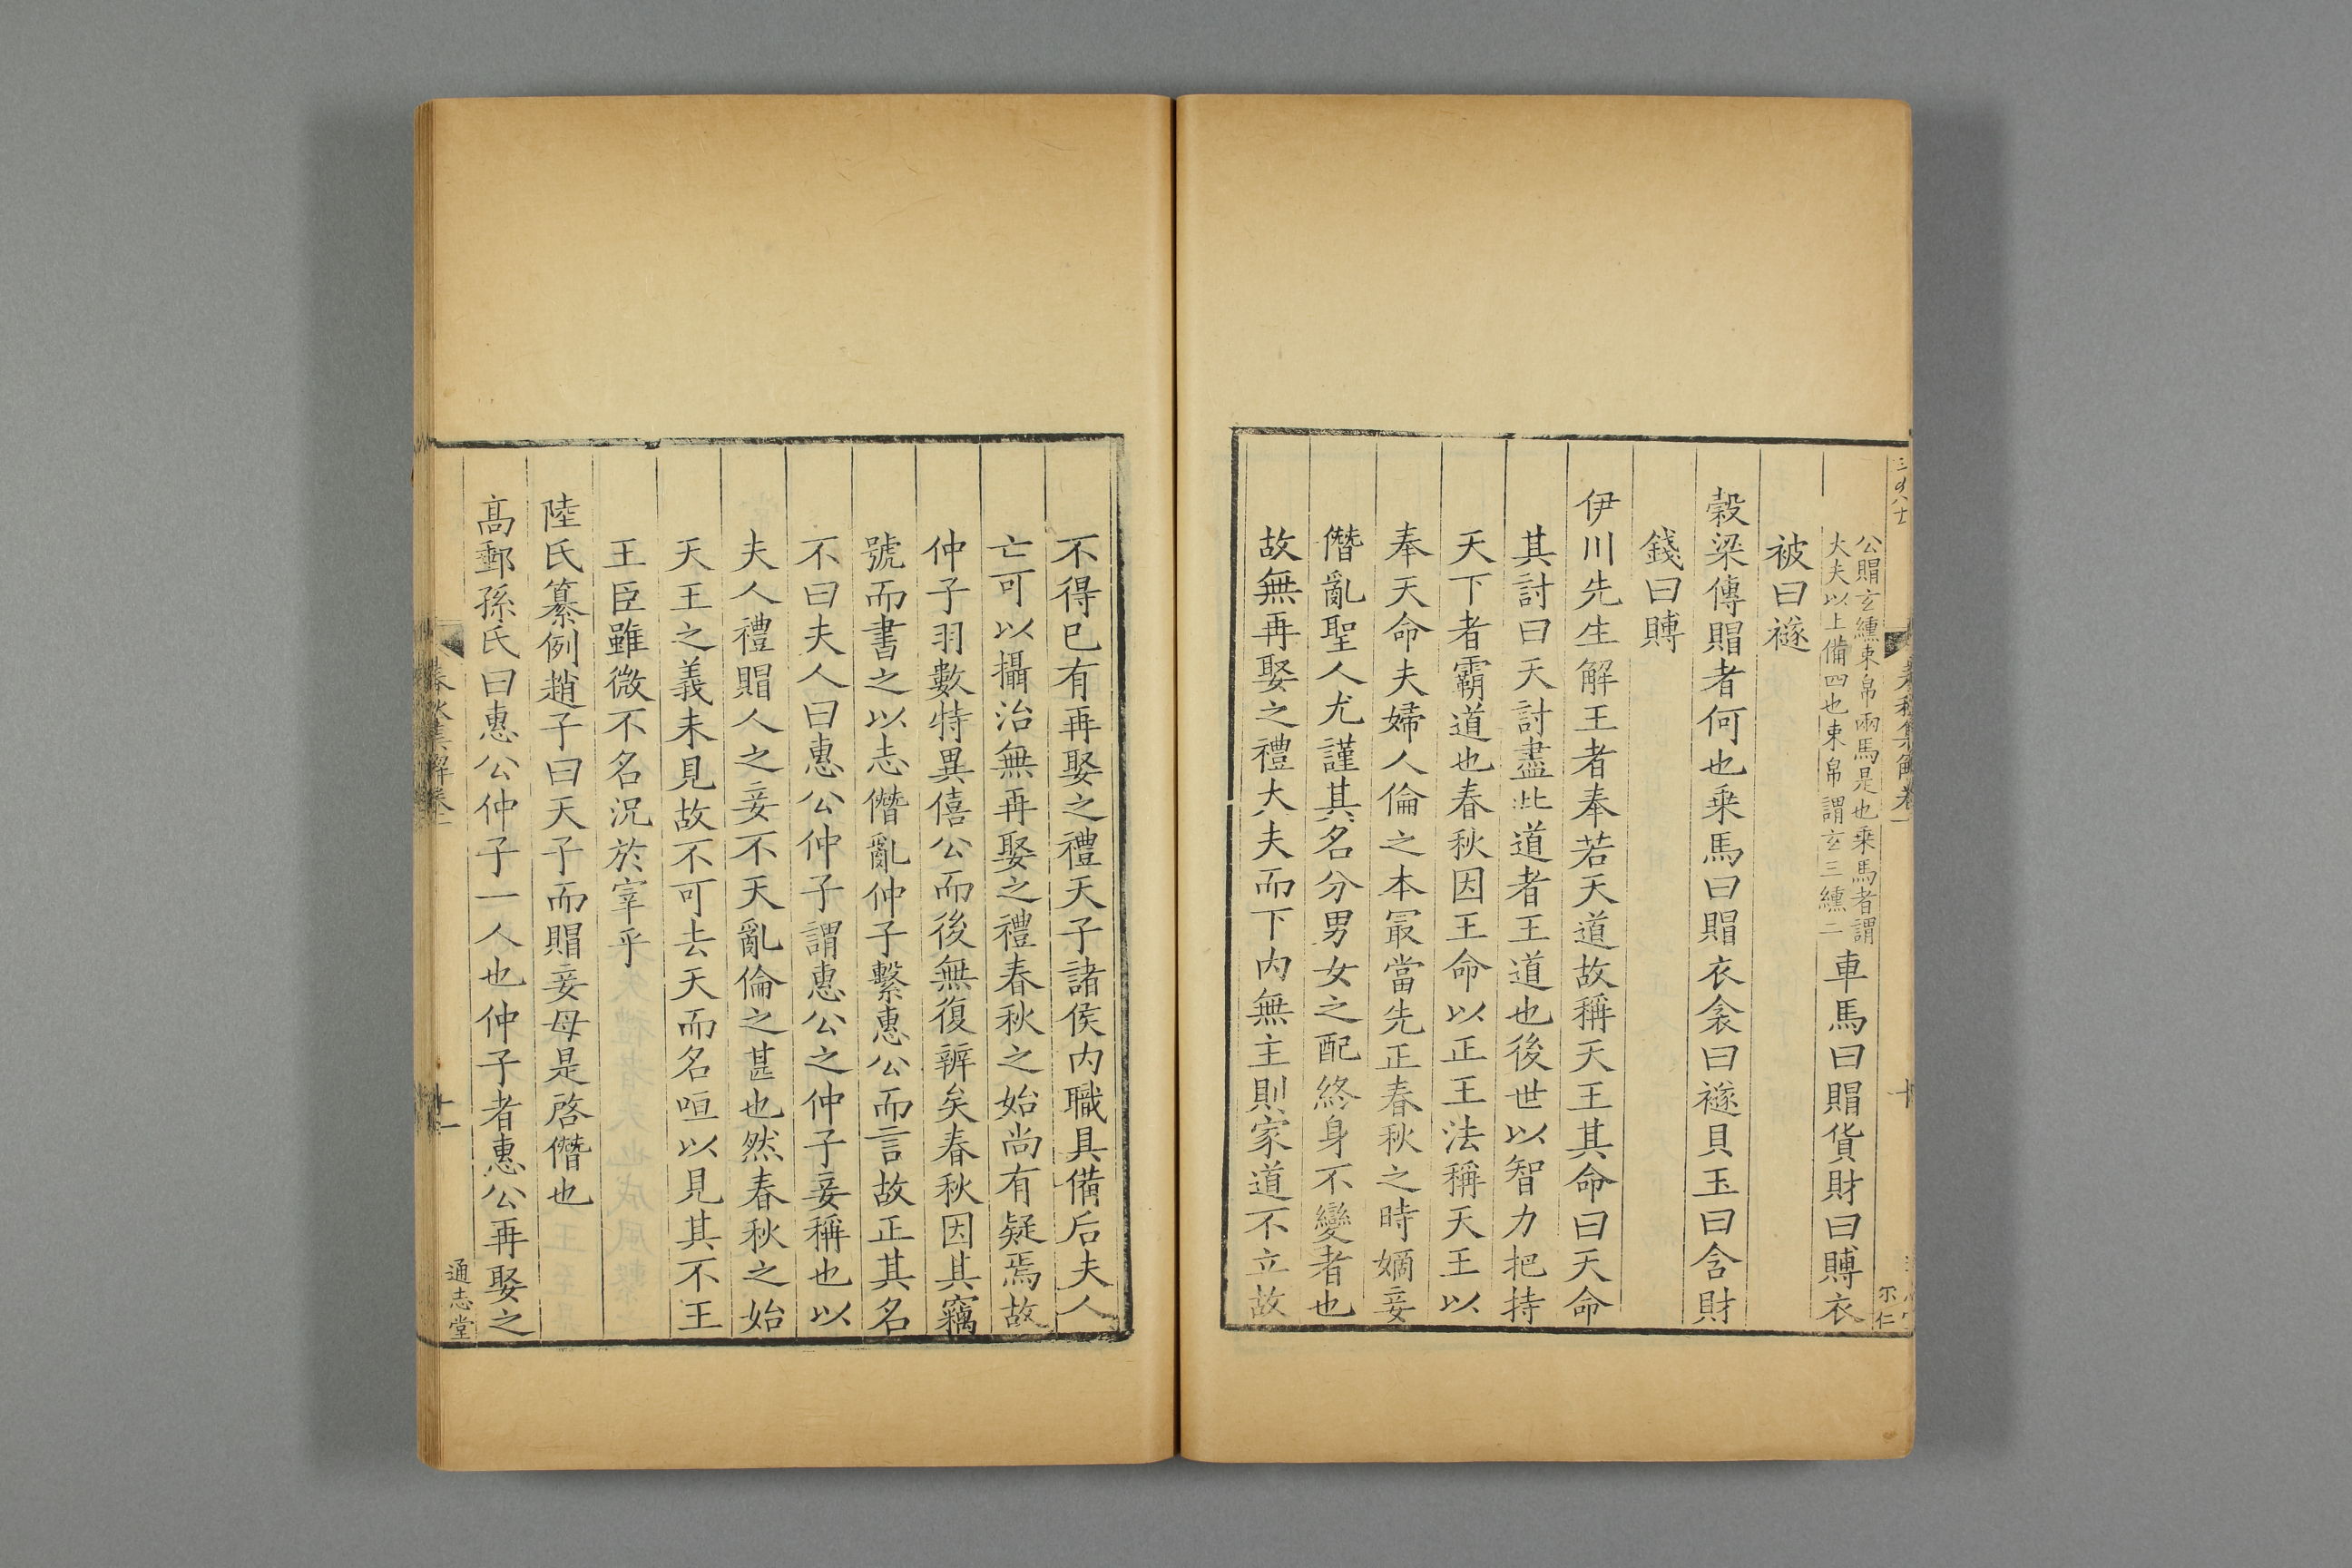 公賵玄纁束帛兩馬是也乗馬者謂
大夫以上備四也束帛謂玄三纁二
車馬曰賵貨財曰賻衣
被曰襚
榖梁傳賵者何也乗馬曰賵衣衾曰襚貝玉曰含財
錢曰賻
伊川先生解王者奉若天道故稱天王其命曰天命
其討曰天討盡此道者王道也後世以智力把持
天下者霸道也春秋因王命以正王法稱天王以
奉天命夫婦人倫之本冣當先正春秋之時嫡妾
僭亂聖人尤謹其名分男女之配終身不變者也
故無再娶之禮大夫而下内無主則家道不立故
不得已有再娶之禮天子諸侯内職具備后夫人
亡可以攝治無再娶之禮春秋之始尚有疑焉故
仲子羽數特異僖公而後無復辨矣春秋因其竊
號而書之以志僭亂仲子繫惠公而言故正其名
不曰夫人曰惠公仲子謂惠公之仲子妾稱也以
夫人禮賵人之妾不天亂倫之甚也然春秋之始
天王之義未見故不可去天而名咺以見其不王
王臣雖微不名況於宰乎
陸氏纂例趙子曰天子而賵妾母是啓僭也
髙郵孫氏曰惠公仲子一人也仲子者惠公再娶之
春秋集解卷一
十一
通志堂